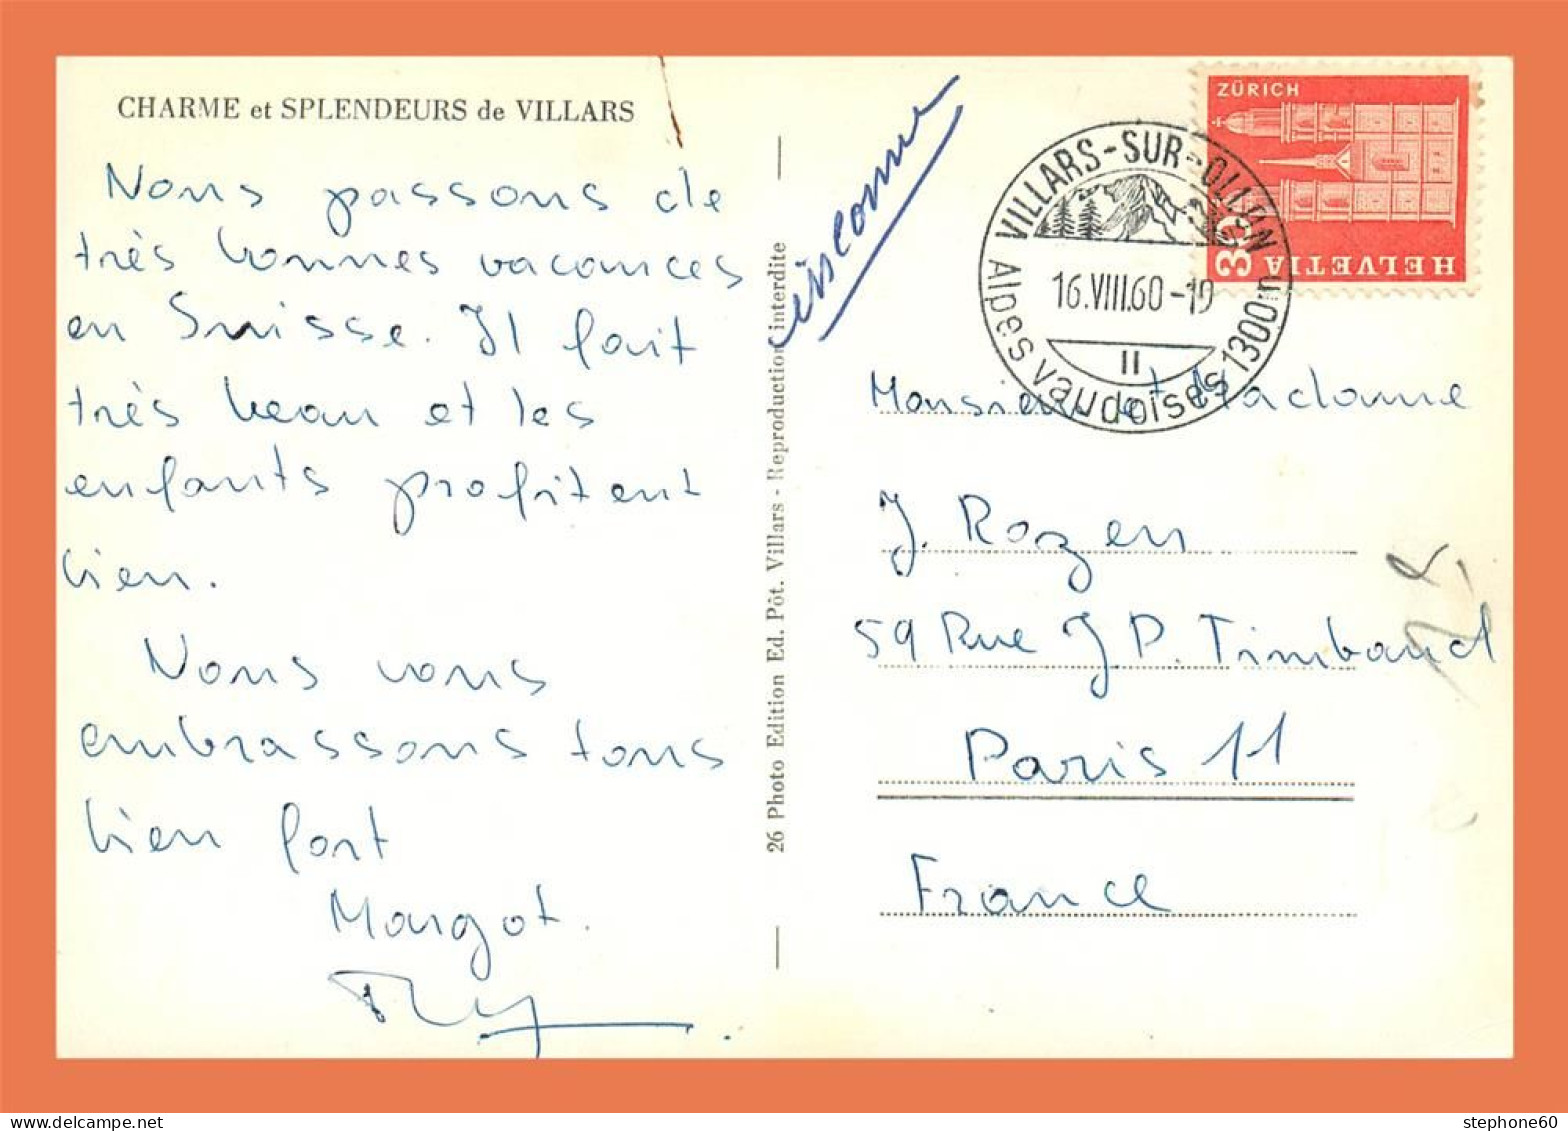 CHARME et SPLENDEURS de VILLARS
Nous passons de
très bonnes vacances
en Suisse. Il fait
très beau et les
enfants profitent
bien.
Nous vous
embrassons tous
bien fort
Margot.
26 Photo Edition Ed. Pôt. Villars - Reproduction interdite
ZÜRICH
30
HELVETIA
VILLARS-SUR-OLLON
16.VIII.60-19
II
Alpes vaudoises 1300m
Monsieur et Madame
J. Rozen
59 Rue J P. Timbaud
Paris 11
France
stephone60